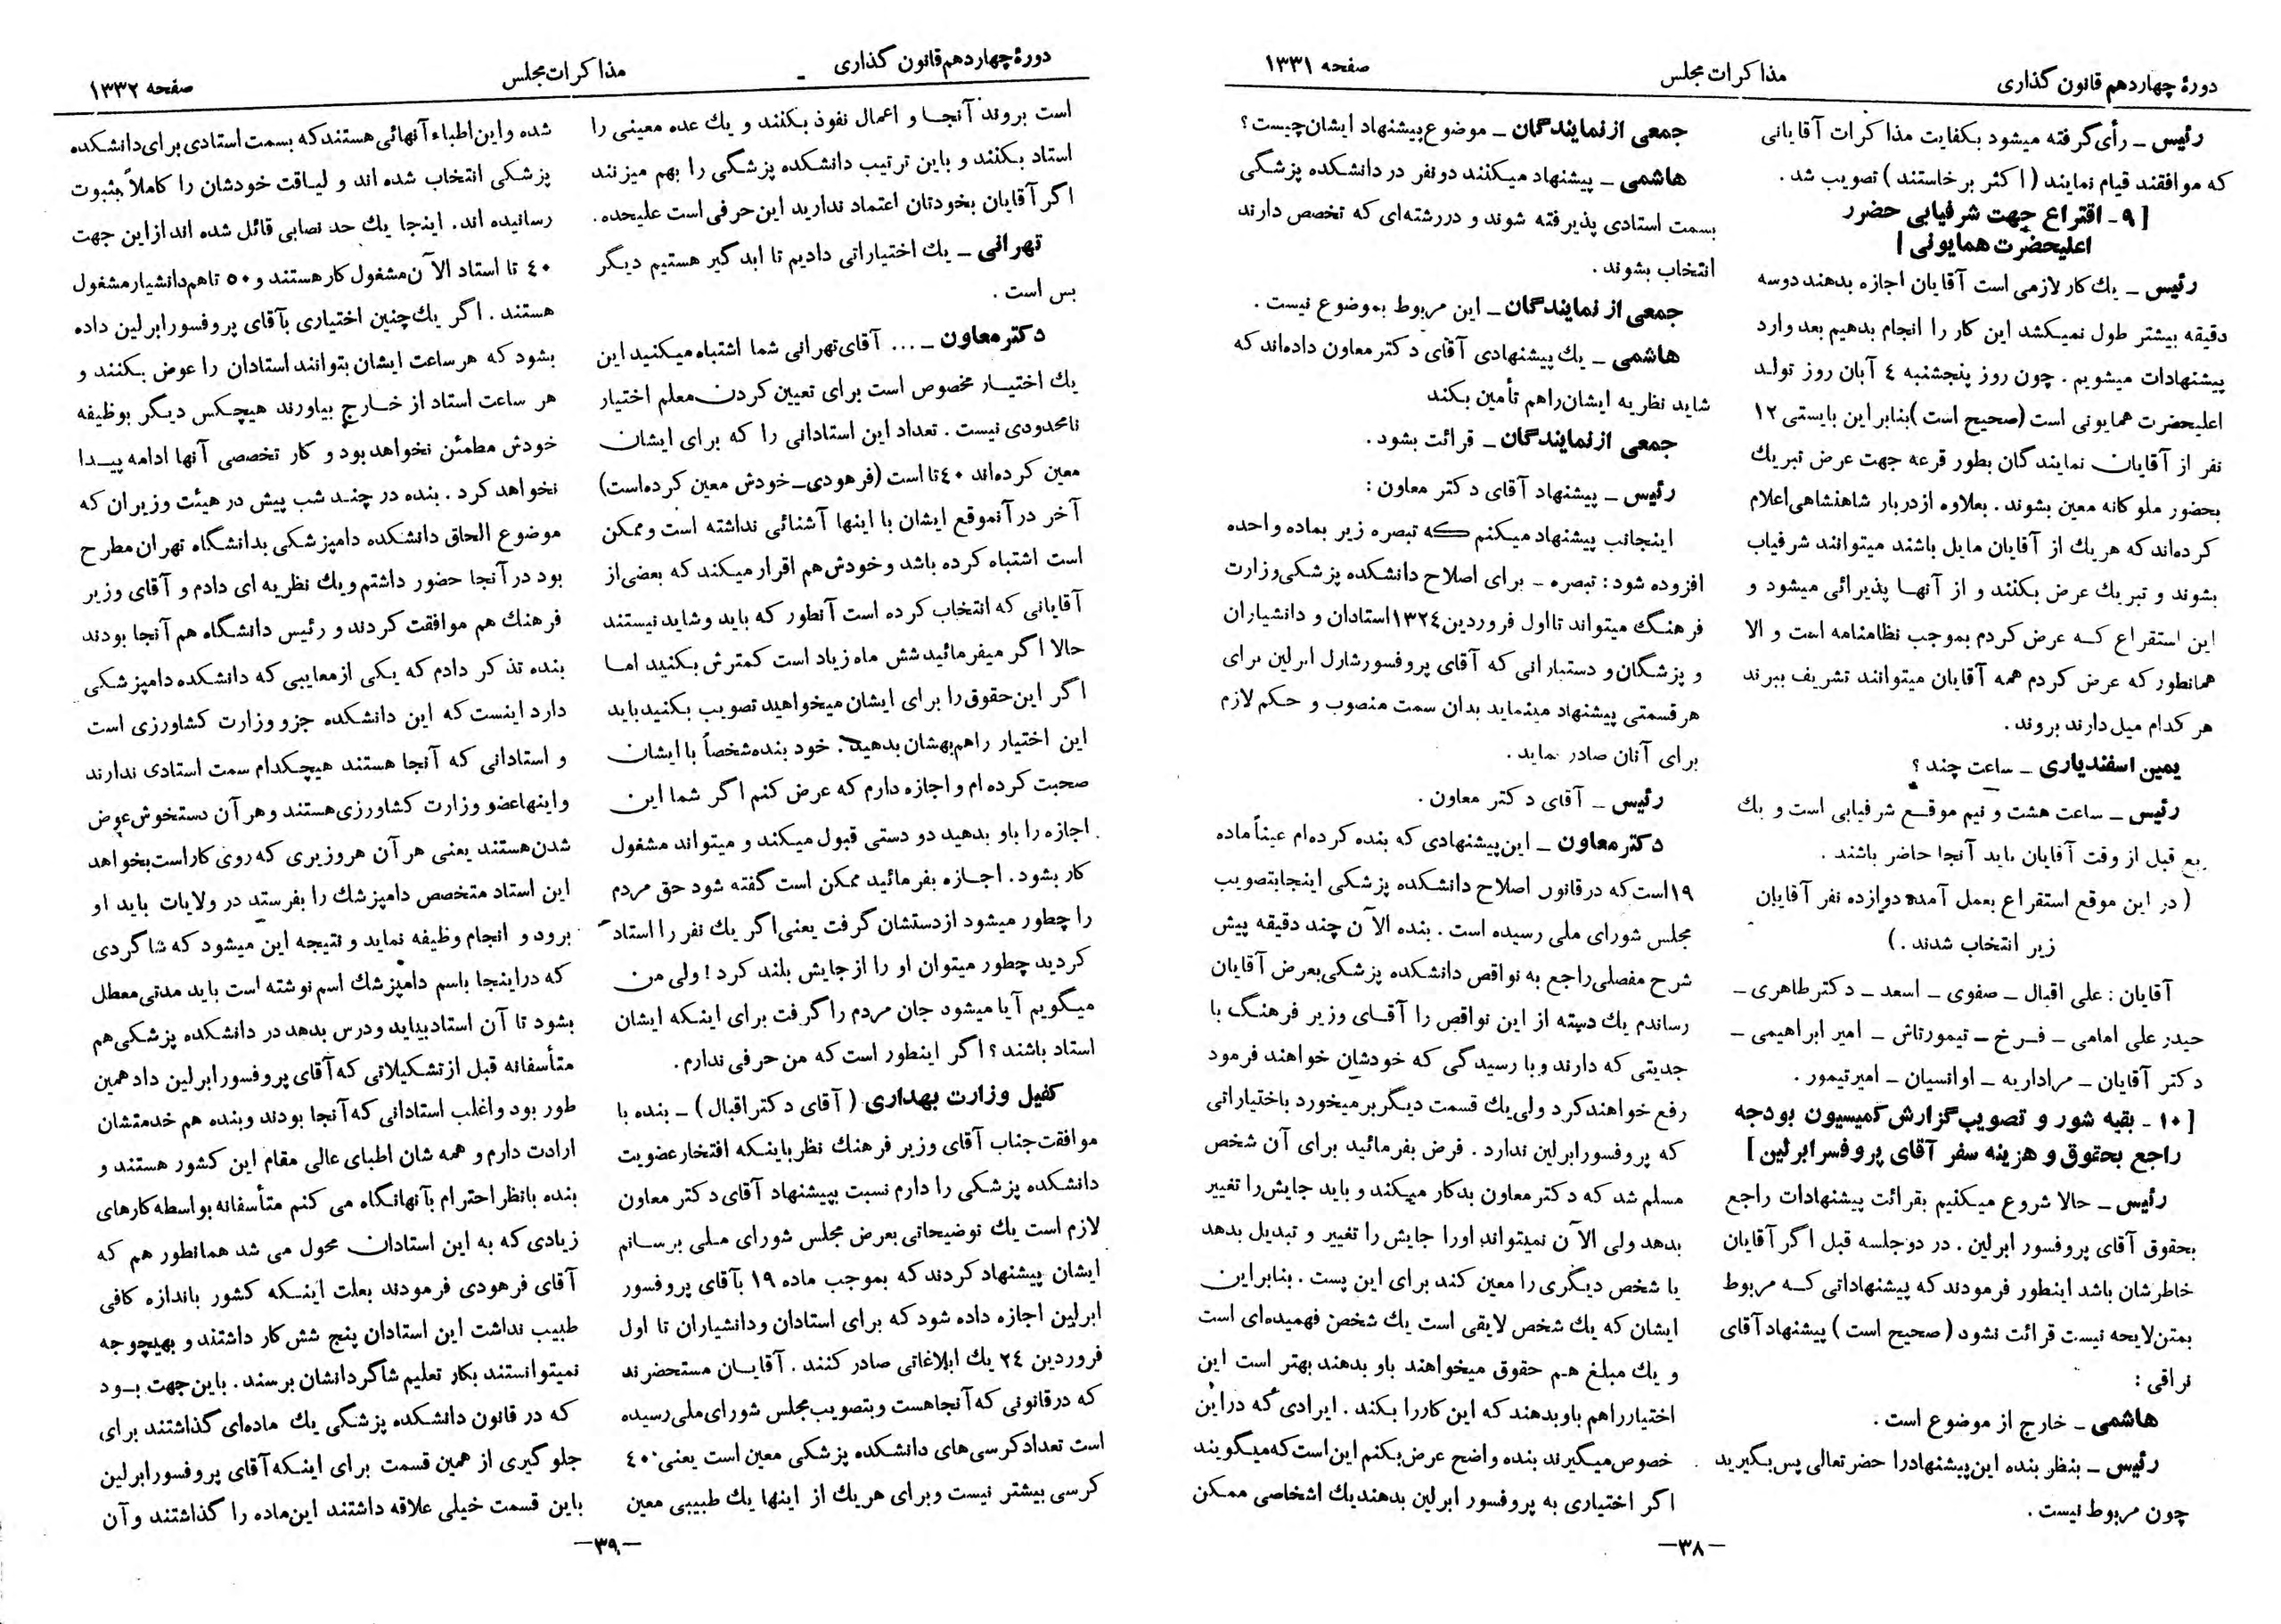 دورهٔ چهاردهم قانون گذاری
مذاکرات مجلس
صفحه ۱۳۳۱
رئیس ـ رأی گرفته میشود بکفایت مذاکرات آقایانی
که موافقند قیام نمایند (اکثر برخاستند) تصویب شد.
[۹ـ اقتراع جهت شرفیابی حضور
اعلیحضرت همایونی]
رئیس ـ یك کار لازمی است آقایان اجازه بدهند دوسه
دقیقه بیشتر طول نمیکشد این کار را انجام بدهیم بعد وارد
پیشنهادات میشویم. چون روز پنجشنبه ٤ آبان روز تولد
اعلیحضرت همایونی است (صحیح است) بنابراین بایستی ۱۲
نفر از آقایان نمایندگان بطور قرعه جهت عرض تبریك
بحضور ملوکانه معین بشوند. بعلاوه ازدربار شاهنشاهی اعلام
کرده‌اند که هریك از آقایان مایل باشند میتوانند شرفیاب
بشوند و تبریك عرض بکنند و از آنها پذیرائی میشود و
این استقراع که عرض کردم بموجب نظامنامه است و الا
همانطور که عرض کردم همه آقایان میتوانند تشریف ببرند
هر کدام میل دارند بروند.
یمین اسفندیاری ـ ساعت چند؟
رئیس ـ ساعت هشت و نیم موقع شرفیابی است و یك
ربع قبل از وقت آقایان باید آنجا حاضر باشند.
(در این موقع استقراع بعمل آمده دوازده نفر آقایان
زیر انتخاب شدند.)
آقایان: علی اقبال ـ صفوی ـ اسعد ـ دکترطاهری ـ
حیدر علی امامی ـ فرخ ـ تیمورتاش ـ امیر ابراهیمی ـ
دکتر آقایان ـ مراداریه ـ اوانسیان ـ امیرتیمور.
[۱۰ ـ بقیه شور و تصویب گزارش کمیسیون بودجه
راجع بحقوق و هزینه سفر آقای پروفسر ابرلین]
رئیس ـ حالا شروع میکنیم بقرائت پیشنهادات راجع
بحقوق آقای پروفسور ابرلین. در دوجلسه قبل اگر آقایان
خاطرشان باشد اینطور فرمودند که پیشنهاداتی که مربوط
بمتن لایحه نیست قرائت نشود (صحیح است) پیشنهاد آقای
نراقی:
هاشمی ـ خارج از موضوع است.
رئیس ـ بنظر بنده این پیشنهادرا حضرتعالی پس بگیرید
چون مربوط نیست.
جمعی ازنمایندگان ـ موضوع پیشنهاد ایشان چیست؟
هاشمی ـ پیشنهاد میکنند دونفر در دانشکده پزشکی
بسمت استادی پذیرفته شوند و دررشته‌ای که تخصص دارند
انتخاب بشوند.
جمعی از نمایندگان ـ این مربوط بموضوع نیست.
هاشمی ـ یك پیشنهادی آقای دکتر معاون داده‌اند که
شاید نظریه ایشان راهم تأمین بکند
جمعی ازنمایندگان ـ قرائت بشود.
رئیس ـ پیشنهاد آقای دکتر معاون:
اینجانب پیشنهاد میکنم که تبصره زیر بماده واحده
افزوده شود: تبصره ـ برای اصلاح دانشکده پزشکی وزارت
فرهنگ میتواند تااول فروردین ۱۳۲٤ استادان و دانشیاران
و پزشگان و دستیارانی که آقای پروفسورشارل ابرلین برای
هر قسمتی پیشنهاد مینماید بدان سمت منصوب و حکم لازم
برای آنان صادر نماید.
رئیس ـ آقای دکتر معاون.
دکتر معاون ـ این پیشنهادی که بنده کرده‌ام عیناً ماده
۱۹ است که در قانون اصلاح دانشکده پزشکی اینجا بتصویب
مجلس شورای ملی رسیده است. بنده الآن چند دقیقه پیش
شرح مفصلی راجع به نواقص دانشکده پزشکی بعرض آقایان
رساندم یك دسته از این نواقص را آقای وزیر فرهنگ با
جدیتی که دارند و با رسیدگی که خودشان خواهند فرمود
رفع خواهند کرد ولی یك قسمت دیگر برمیخورد باختیاراتی
که پروفسورابرلین ندارد. فرض بفرمائید برای آن شخص
مسلم شد که دکتر معاون بدکار میکند و باید جایش را تغییر
بدهد ولی الآن نمیتواند اورا جایش را تغییر و تبدیل بدهد
یا شخص دیگری را معین کند برای این پست. بنابراین
ایشان که یك شخص لایقی است یك شخص فهمیده‌ای است
و یك مبلغ هم حقوق میخواهند باو بدهند بهتر است این
اختیار راهم باو بدهند که این کاررا بکند. ایرادی که دراین
خصوص میگیرند بنده واضح عرض بکنم این است که میگویند
اگر اختیاری به پروفسور ابرلین بدهند یك اشخاصی ممکن
ـ۳۸ـ
دورهٔ چهاردهم قانون گذاری
مذاکرات مجلس
صفحه ۱۳۳۲
است بروند آنجا و اعمال نفوذ بکنند و یك عده معینی را
استاد بکنند و باین ترتیب دانشکده پزشگی را بهم میزنند
اگر آقایان بخودتان اعتماد ندارید این حرفی است علیحده.
تهرانی ـ یك اختیاراتی دادیم تا ابد گیر هستیم دیگر
بس است.
دکتر معاون ـ ... آقای تهرانی شما اشتباه میکنید این
یك اختیار مخصوص است برای تعیین کردن معلم اختیار
نامحدودی نیست. تعداد این استادانی را که برای ایشان
معین کرده‌اند ٤۰ تا است (فرهودی ـ خودش معین کرده‌است)
آخر در آنموقع ایشان با اینها آشنائی نداشته است و ممکن
است اشتباه کرده باشد و خودش هم اقرار میکند که بعضی از
آقایانی که انتخاب کرده است آنطور که باید و شاید نیستند
حالا اگر میفرمائید شش ماه زیاد است کمترش بکنید اما
اگر این حقوق را برای ایشان میخواهید تصویب بکنید باید
این اختیار راهم بهشان بدهید. خود بنده شخصاً با ایشان
صحبت کرده ام و اجازه دارم که عرض کنم اگر شما این
اجازه را باو بدهید دو دستی قبول میکند و میتواند مشغول
کار بشود. اجازه بفرمائید ممکن است گفته شود حق مردم
را چطور میشود ازدستشان گرفت یعنی اگر یك نفر را استاد
کردید چطور میتوان او را از جایش بلند کرد! ولی من
میگویم آیا میشود جان مردم را گرفت برای اینکه ایشان
استاد باشند؟ اگر اینطور است که من حرفی ندارم.
کفیل وزارت بهداری (آقای دکتر اقبال) ـ بنده با
موافقت جناب آقای وزیر فرهنك نظر باینکه افتخار عضویت
دانشکده پزشکی را دارم نسبت بپیشنهاد آقای دکتر معاون
لازم است یك توضیحاتی بعرض مجلس شورای ملی برسانم
ایشان پیشنهاد کردند که بموجب ماده ۱۹ بآقای پروفسور
ابرلین اجازه داده شود که برای استادان و دانشیاران تا اول
فروردین ۲٤ یك ابلاغاتی صادر کنند. آقایان مستحضرند
که در قانونی که آنجا هست و بتصویب مجلس شورای ملی رسیده
است تعداد کرسی‌های دانشکده پزشکی معین است یعنی ٤۰
کرسی بیشتر نیست و برای هریك از اینها یك طبیبی معین
شده و این اطباء آنهائی هستند که بسمت استادی برای دانشکده
پزشکی انتخاب شده اند و لیاقت خودشان را کاملاً بثبوت
رسانیده اند. اینجا یك حد نصابی قائل شده اند ازاین جهت
٤۰ تا استاد الآن مشغول کار هستند و ٥۰ تا هم دانشیار مشغول
هستند. اگر یك چنین اختیاری بآقای پروفسور ابرلین داده
بشود که هر ساعت ایشان بتوانند استادان را عوض بکنند و
هر ساعت استاد از خارج بیاورند هیچکس دیگر بوظیفه
خودش مطمئن نخواهد بود و کار تخصصی آنها ادامه پیدا
نخواهد کرد. بنده در چند شب پیش در هیئت وزیران که
موضوع الحاق دانشکده دامپزشکی بدانشگاه تهران مطرح
بود در آنجا حضور داشتم و یك نظریه ای دادم و آقای وزیر
فرهنك هم موافقت کردند و رئیس دانشگاه هم آنجا بودند
بنده تذکر دادم که یکی از معایبی که دانشکده دامپزشکی
دارد اینست که این دانشکده جزو وزارت کشاورزی است
و استادانی که آنجا هستند هیچکدام سمت استادی ندارند
و اینها عضو وزارت کشاورزی هستند و هر آن دستخوش عوض
شدن هستند یعنی هر آن هر وزیری که روی کار است بخواهد
این استاد متخصص دامپزشك را بفرستد در ولایات باید او
برود و انجام وظیفه نماید و نتیجه این میشود که شاگردی
که دراینجا باسم دامپزشك اسم نوشته است باید مدتی معطل
بشود تا آن استاد بیاید و درس بدهد در دانشکده پزشکی هم
متأسفانه قبل از تشکیلاتی که آقای پروفسور ابرلین داد همین
طور بود و اغلب استادانی که آنجا بودند و بنده هم خدمتشان
ارادت دارم و همه شان اطبای عالی مقام این کشور هستند و
بنده بانظر احترام بآنها نگاه می کنم متأسفانه بواسطه کارهای
زیادی که به این استادان محول می شد همانطور هم که
آقای فرهودی فرمودند بعلت اینکه کشور باندازه کافی
طبیب نداشت این استادان پنج شش کار داشتند و بهیچوجه
نمیتوانستند بکار تعلیم شاگردانشان برسند. باین جهت بود
که در قانون دانشکده پزشگی یك ماده‌ای گذاشتند برای
جلوگیری از همین قسمت برای اینکه آقای پروفسور ابرلین
باین قسمت خیلی علاقه داشتند این ماده را گذاشتند و آن
ـ۳۹ـ